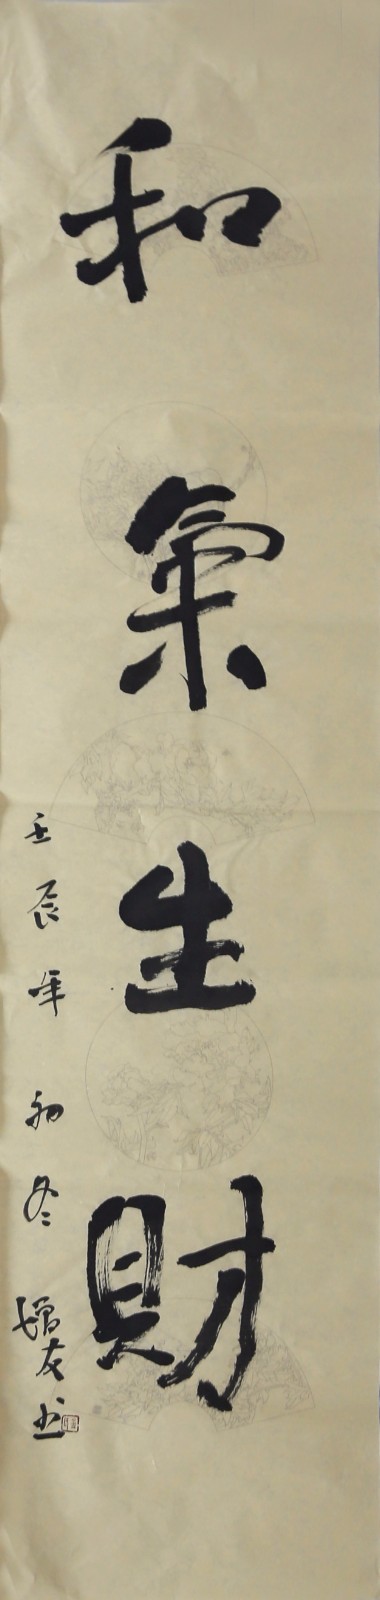 和氣生財
壬辰年初冬增友书